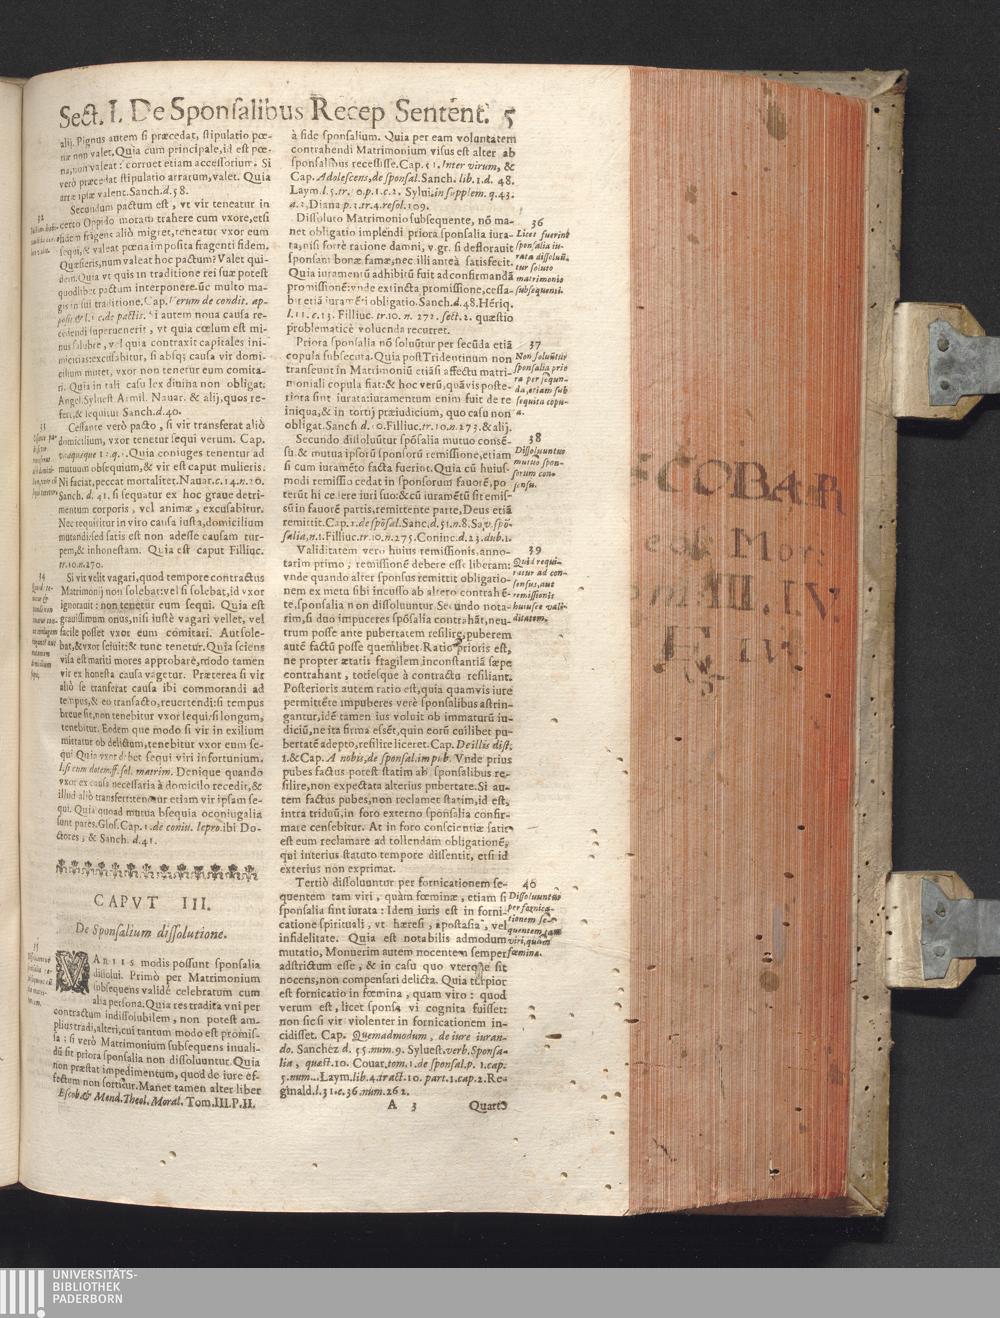 Sect. I. De Sponsalibus Recep Sentent. 5
alij. Pignus autem si præcedat, stipulatio pœ-
næ non valet. Quia cum principale, id est pœ-
na, non valeat: corruet etiam accessorium. Si
verò præcedat stipulatio arrarum, valet. Quia
arræ ipsæ valent. Sanch. d. 58.
32
Secundum pactum est, vt vir teneatur in
certo Oppido moram trahere cum vxore, etsi
fidem frãgens aliò migret, teneatur vxor eum
sequi, & valeat pœna imposita frãgenti fidem.
Quæsieris, num valeat hoc pactum? Valet qui-
dem. Quia vt quis in traditione rei suæ potest
quodlibet pactum interponere. sic multo ma-
gis in sui traditione. Cap. Verum de condit. ap-
posit & l. 1. c. de pactis. Si autem noua causa re-
cedendi superuenerit, vt quia cœlum est mi-
nus salubre, vel quia contraxit capitales ini-
micitias: excusabitur, si absq; causa vir domi-
cilium mutet, vxor non tenetur eum comita-
ri. Quia in tali casu lex diuina non obligat.
Angel. Syluest Armil. Nauar. & alij, quos re-
fert, & sequitur Sanch. d. 40.
33
Cessante verò pacto, si vir transferat aliò
domicilium, vxor tenetur sequi verum. Cap.
vnaquæque 13. q. . Quia coniuges tenentur ad
mutuum obsequium, & vir est caput mulieris.
Ni faciat, peccat mortaliter. Nauar. c. 14. n. 20.
Sanch. d. 41. si sequatur ex hoc graue detri-
mentum corporis, vel animæ, excusabitur.
Nec requiritur in viro causa iusta, domicilium
mutandi: sed satis est non adesse causam tur-
pem, & inhonestam. Quia est caput Filliuc.
tr. 10. n. 270.
34
Si vir velit vagari, quod tempore contractus
Matrimonij non solebat: vel si solebat, id vxor
ignorauit: non tenetur eum sequi. Quia est
grauissimum onus, nisi iustè vagari vellet, vel
facile posset vxor eum comitari. Aut sole-
bat, & vxor sciuit: & tunc tenetur. Quia sciens
visa est mariti mores approbare, modo tamen
vir ex honesta causa vagetur. Præterea si vir
aliò se transferat causa ibi commorandi ad
tempus, & eo transacto, reuertendi: si tempus
breue sit, non tenebitur vxor sequi. si longum,
tenebitur. Eodem que modo si vir in exilium
mittatur ob delictum, tenebitur vxor eum se-
qui. Quia vxor debet sequi viri infortunium.
l. si cum dotem. ff. sol. matrim. Denique quando
vxor ex causa necessaria à domicilo recedit, &
illud aliò transfert: tenetur etiam vir ipsam se-
qui. Quia quoad mutua obsequia coniugalia
sunt pares. Glos. Cap. 1. de coniu. lepro. ibi Do-
ctores, & Sanch. d. 41.
CAPVT III.
De Sponsalium dissolutione.
35
VARIIS modis possunt sponsalia
dissolui. Primò per Matrimonium
subsequens validè celebratum cum
alia persona. Quia res tradita vni per
contractum indissolubilem, non potest am-
plius tradi, alteri, cui tantum modo est promis-
sa: si verò Matrimonium subsequens inuali-
dũ sit priora sponsalia non dissoluuntur. Quia
non præstat impedimentum, quod de iure ef-
fectum non sortitur. Manet tamen alter liber
Escob. & Mend. Theol. Moral. Tom. III. P. II.
à fide sponsalium. Quia per eam voluntatem
contrahendi Matrimonium visus est alter ab
sponsalibus recessisse. Cap. 51. Inter virum, &
Cap. Adolescens, de sponsal. Sanch. lib. 1. d. 48.
Laym. l. 5. tr. 10. p. 1. c. 2. Sylui. in supplem. q. 43.
a. 1, Diana p. 3. tr. 4. resol. 109.
Dissoluto Matrimonio subsequente, nõ ma-
net obligatio implendi priora sponsalia iura-
ta, nisi fortè ratione damni, v. gr. si deflorauit
sponsam bonæ famæ, nec illi anteà satisfecit.
Quia iuramentũ adhibitũ fuit ad confirmandã
promissionẽ: vnde extincta promissione, cessa-
bit etiã iuramẽti obligatio. Sanch. d. 48. Hẽriq.
l. 11. c. 13. Filliuc. tr. 10. n. 272. sect. 2. quæstio
problematicè voluenda recurret.
36
Licet fuerint
sponsalia iu-
rata dissoluũ-
tur soluto
matrimonio
subsequenti.
Priora sponsalia nõ soluũtur per secũda etiã
copula subsecuta. Quia post Tridentinum non
transeunt in Matrimoniũ etiãsi affectu matri-
moniali copula fiat: & hoc verũ, quãvis poste-
riora sint iurata: iuramentum enim fuit de re
iniqua, & in tortij præiudicium, quo casu non
obligat. Sanch d. 10. Filliuc. tr. 10. n. 273. & alij.
37
Non soluũtur
sponsalia prio
ra per sequn-
da, etiam sub
sequuta copu-
a.
Secundo dissoluũtur spõsalia mutuo consẽ-
su. & mutua ipsorũ sponsorũ remissione, etiam
si cum iuramẽto facta fuerint. Quia cũ huius-
modi remissio cedat in sponsorum fauorẽ, po
terũt hi cedere iuri suo: & cũ iuramẽtũ sit emis-
sũ in fauorẽ partis, remittente parte, Deus etiã
remittit. Cap. 2. de spõsal. Sanc. d. 51. n. 8. Sa, v. spõ-
salia, n. 1. Filliuc. tr. 10. n. 275. Coninc. d. 23. dub. 1.
38
Dissoluuntur
mutuo spon-
sorum con-
sensu.
Validitatem verò huius remissionis, anno-
tarim primo, remissionẽ debere esse liberam:
vnde quando alter sponsus remittit obligatio-
nem ex metu sibi incusso ab altero contrahẽ-
te, sponsalia non dissoluuntur. Secundo nota-
rim, si duo impuceres spõsalia contrahãt, neu-
trum posse ante pubertatem resilire, puberem
autẽ factũ posse quemlibet. Ratio prioris est,
ne propter ætatis fragilem inconstantiã sæpe
contrahant, totiesque à contractu resiliant.
Posterioris autem ratio est, quia quamvis iure
permittẽte impuberes verè sponsalibus astrin-
gantur, idẽ tamen ius voluit ob immaturũ iu-
diciũ, ne ita firma essẽt, quin eorũ cuilibet pu-
bertatẽ adepto, resilire liceret. Cap. De illis dist.
1. & Cap. A nobis, de sponsal. impub. Vnde prius
pubes factus potest statim ab sponsalibus re-
silire, non expectata alterius pubertate. Si au-
tem factus pubes, non reclamet statim, id est,
intra triduũ, in foro externo sponsalia confir-
mare censebitur. At in foro conscientiæ satis
est eum reclamare ad tollendam obligationẽ,
qui interius statuto tempore dissentit, etsi id
exterius non exprimat.
39
Quid requi-
ratur ad con-
sensus, aut
remissionis
huiusce vali-
ditatem.
Tertiò dissoluuntur per fornicationem se-
quentem tam viri, quàm fœminæ, etiam si
sponsalia sint iurata: Idem iuris est in forni-
catione spirituali, vt hæresi, apostasia, vel
infidelitate. Quia est notabilis admodum
mutatio, Monuerim autem nocentem semper
adstrictum esse, & in casu quo vterque sit
nocens, non compensari delicta. Quia turpior
est fornicatio in fœmina, quam viro: quod
verum est, licet sponsa vi cognita fuisset:
non sic si vir violenter in fornicationem in-
cidisset. Cap. Quemadmodum, de iure iuran-
do. Sanchez d. 55. num. 9. Syluest. verb. Sponsa-
lia, quæst. 10. Couar. tom. 1. de sponsal. p. 1. cap.
5. num... Laym. lib. 4. tract. 10. part. 1. cap. 2. Re-
ginald. l. 31. c. 36. num. 262.
40
Dissoluuntur
per fornica-
tionem se-
quentem tam
viri, quàm
fœmina.
A 3 Quartò
ESCOBAR
Mor.
III. IV.
UNIVERSITÄTS-
BIBLIOTHEK
PADERBORN